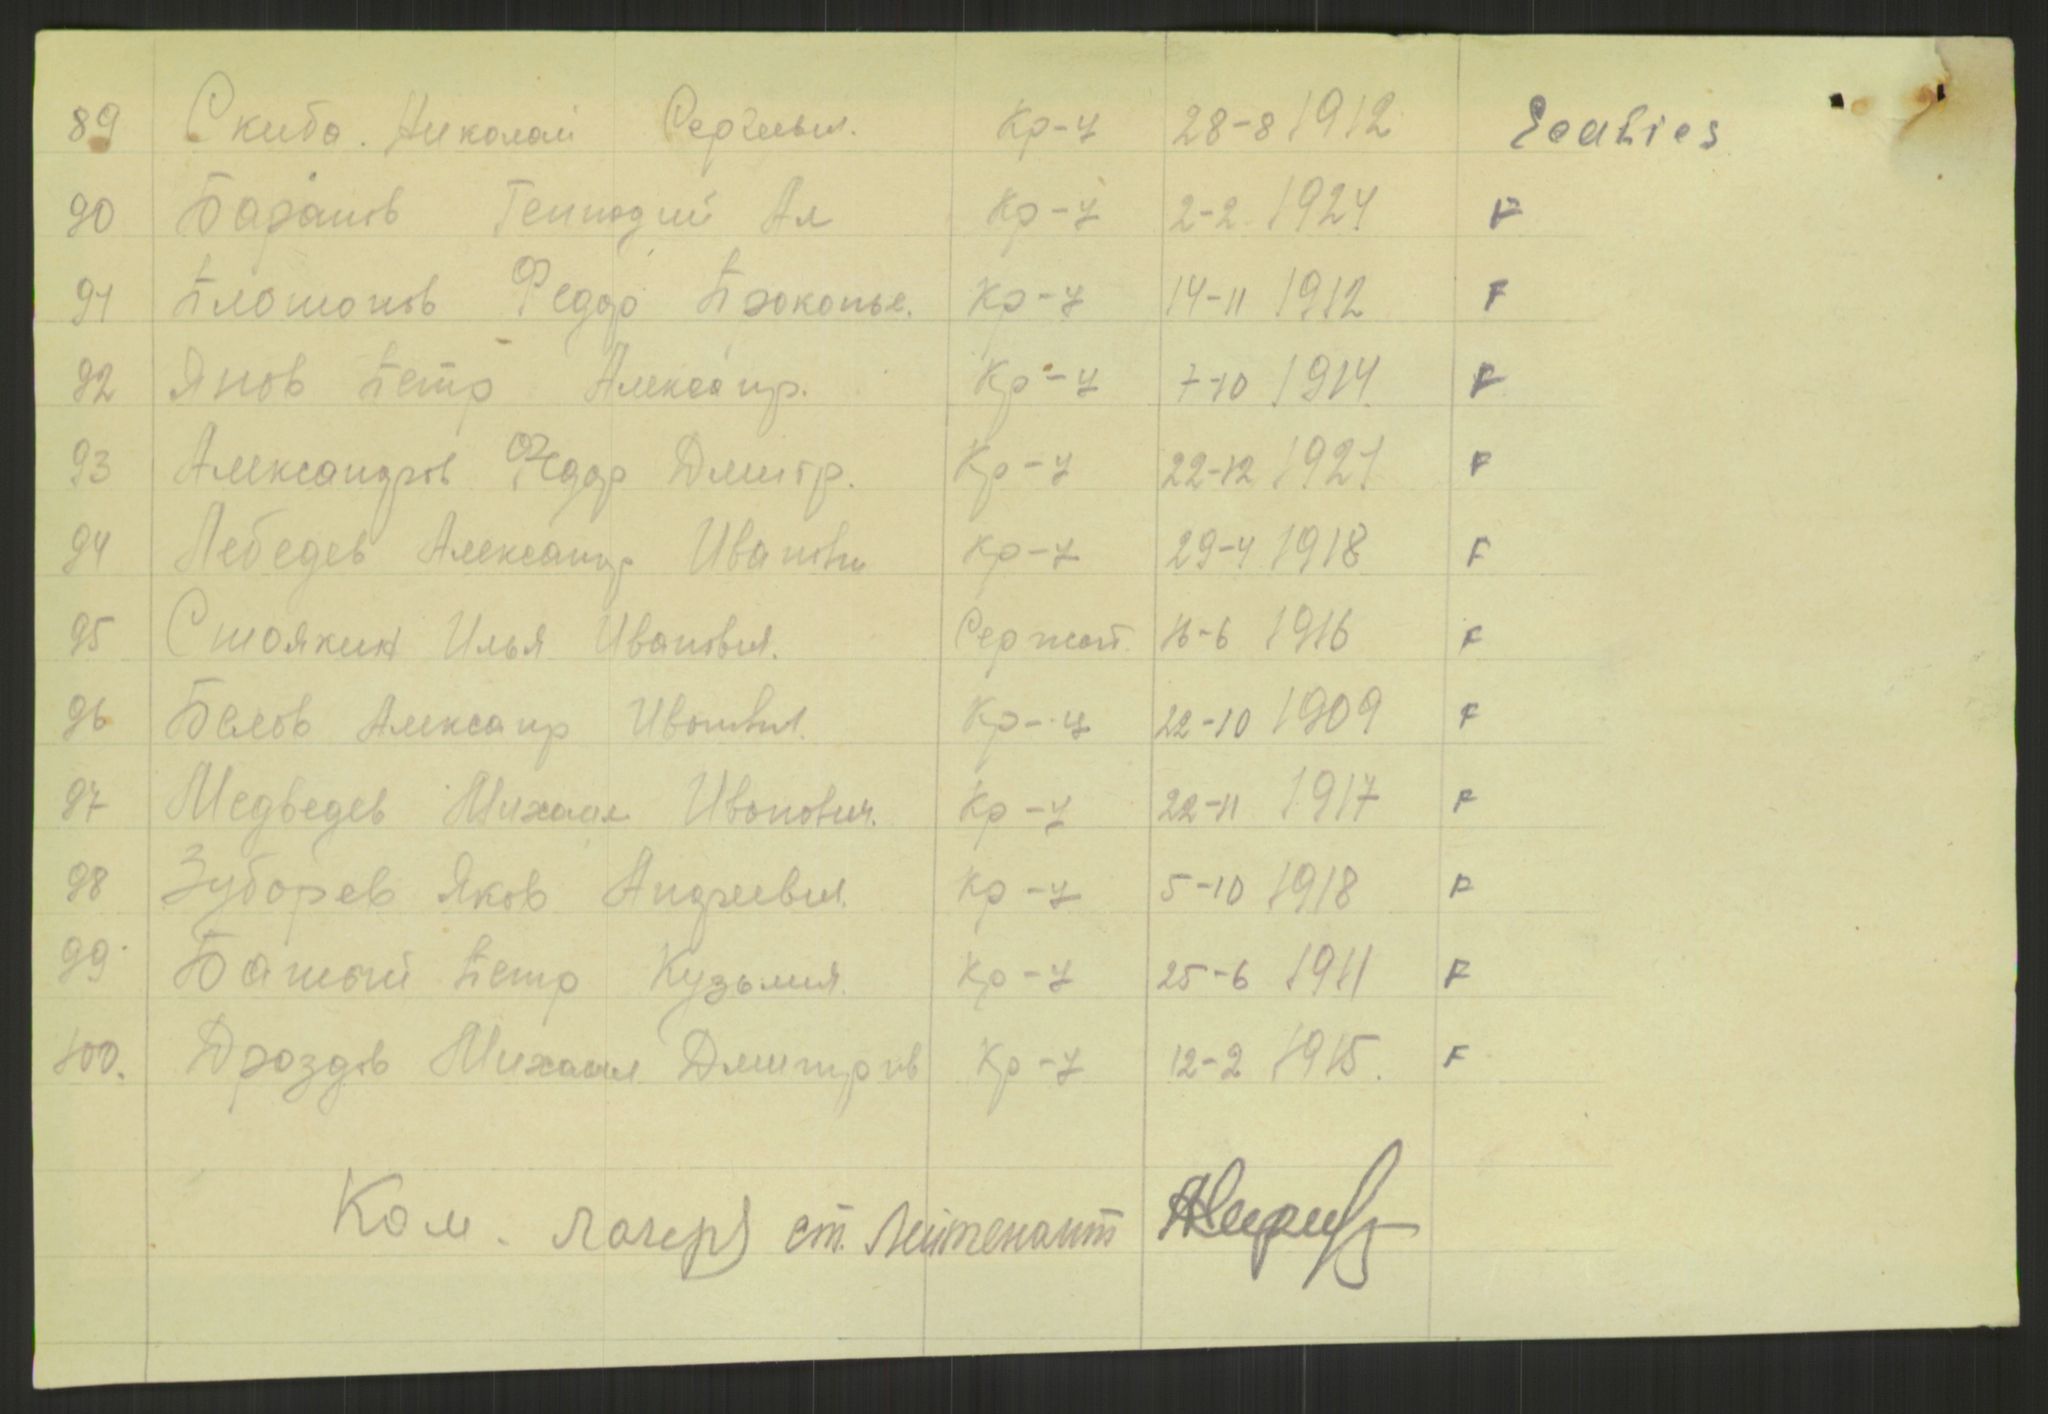 89 Скиба. Николай Сергеевич. Кр-ц 28-8 1912 Scabies
90 Баранов Геннадий Ал Кр-ц 2-2 1924 F
91 Платонов Федор Прокопье. Кр-ц 14-11 1912 F
92 Янов Петр Алексанр. Кр-ц 7-10 1914 F
93 Александров Федор Дмитр. Кр-ц 22-12 1921 F
94 Лебедев Александр Иванович Кр-ц 29-4 1918 F
95 Стоякин Илья Иванович. Сержант. 16-6 1916 F
96 Белов Алексанр Иванович. Кр-ц 22-10 1909 F
97 Медведев Михаил Иванович. Кр-ц 22-11 1917 F
98 Зубарев Яков Андреевич. Кр-ц 5-10 1918 F
99 Петр Кузьмич. Кр-ц 25-6 1911 F
100. Дроздов Михаил Дмитров Кр-ц 12-2 1915. F
Ком. лагеря ст. Лейтенант